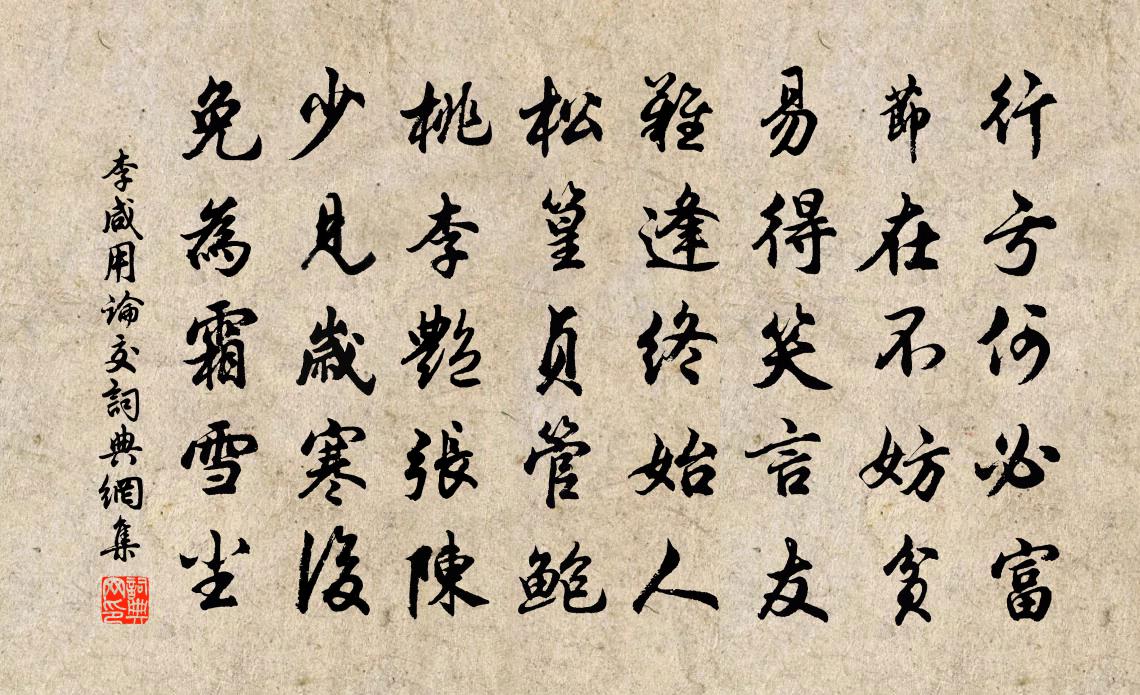 行亏何必富
節在不妨貧
易得笑言友
難逢終始人
松篁貞管鮑
桃李艷張陳
少見歲寒後
免為霜雪尘
李咸用論交詞典網集
詞典網印